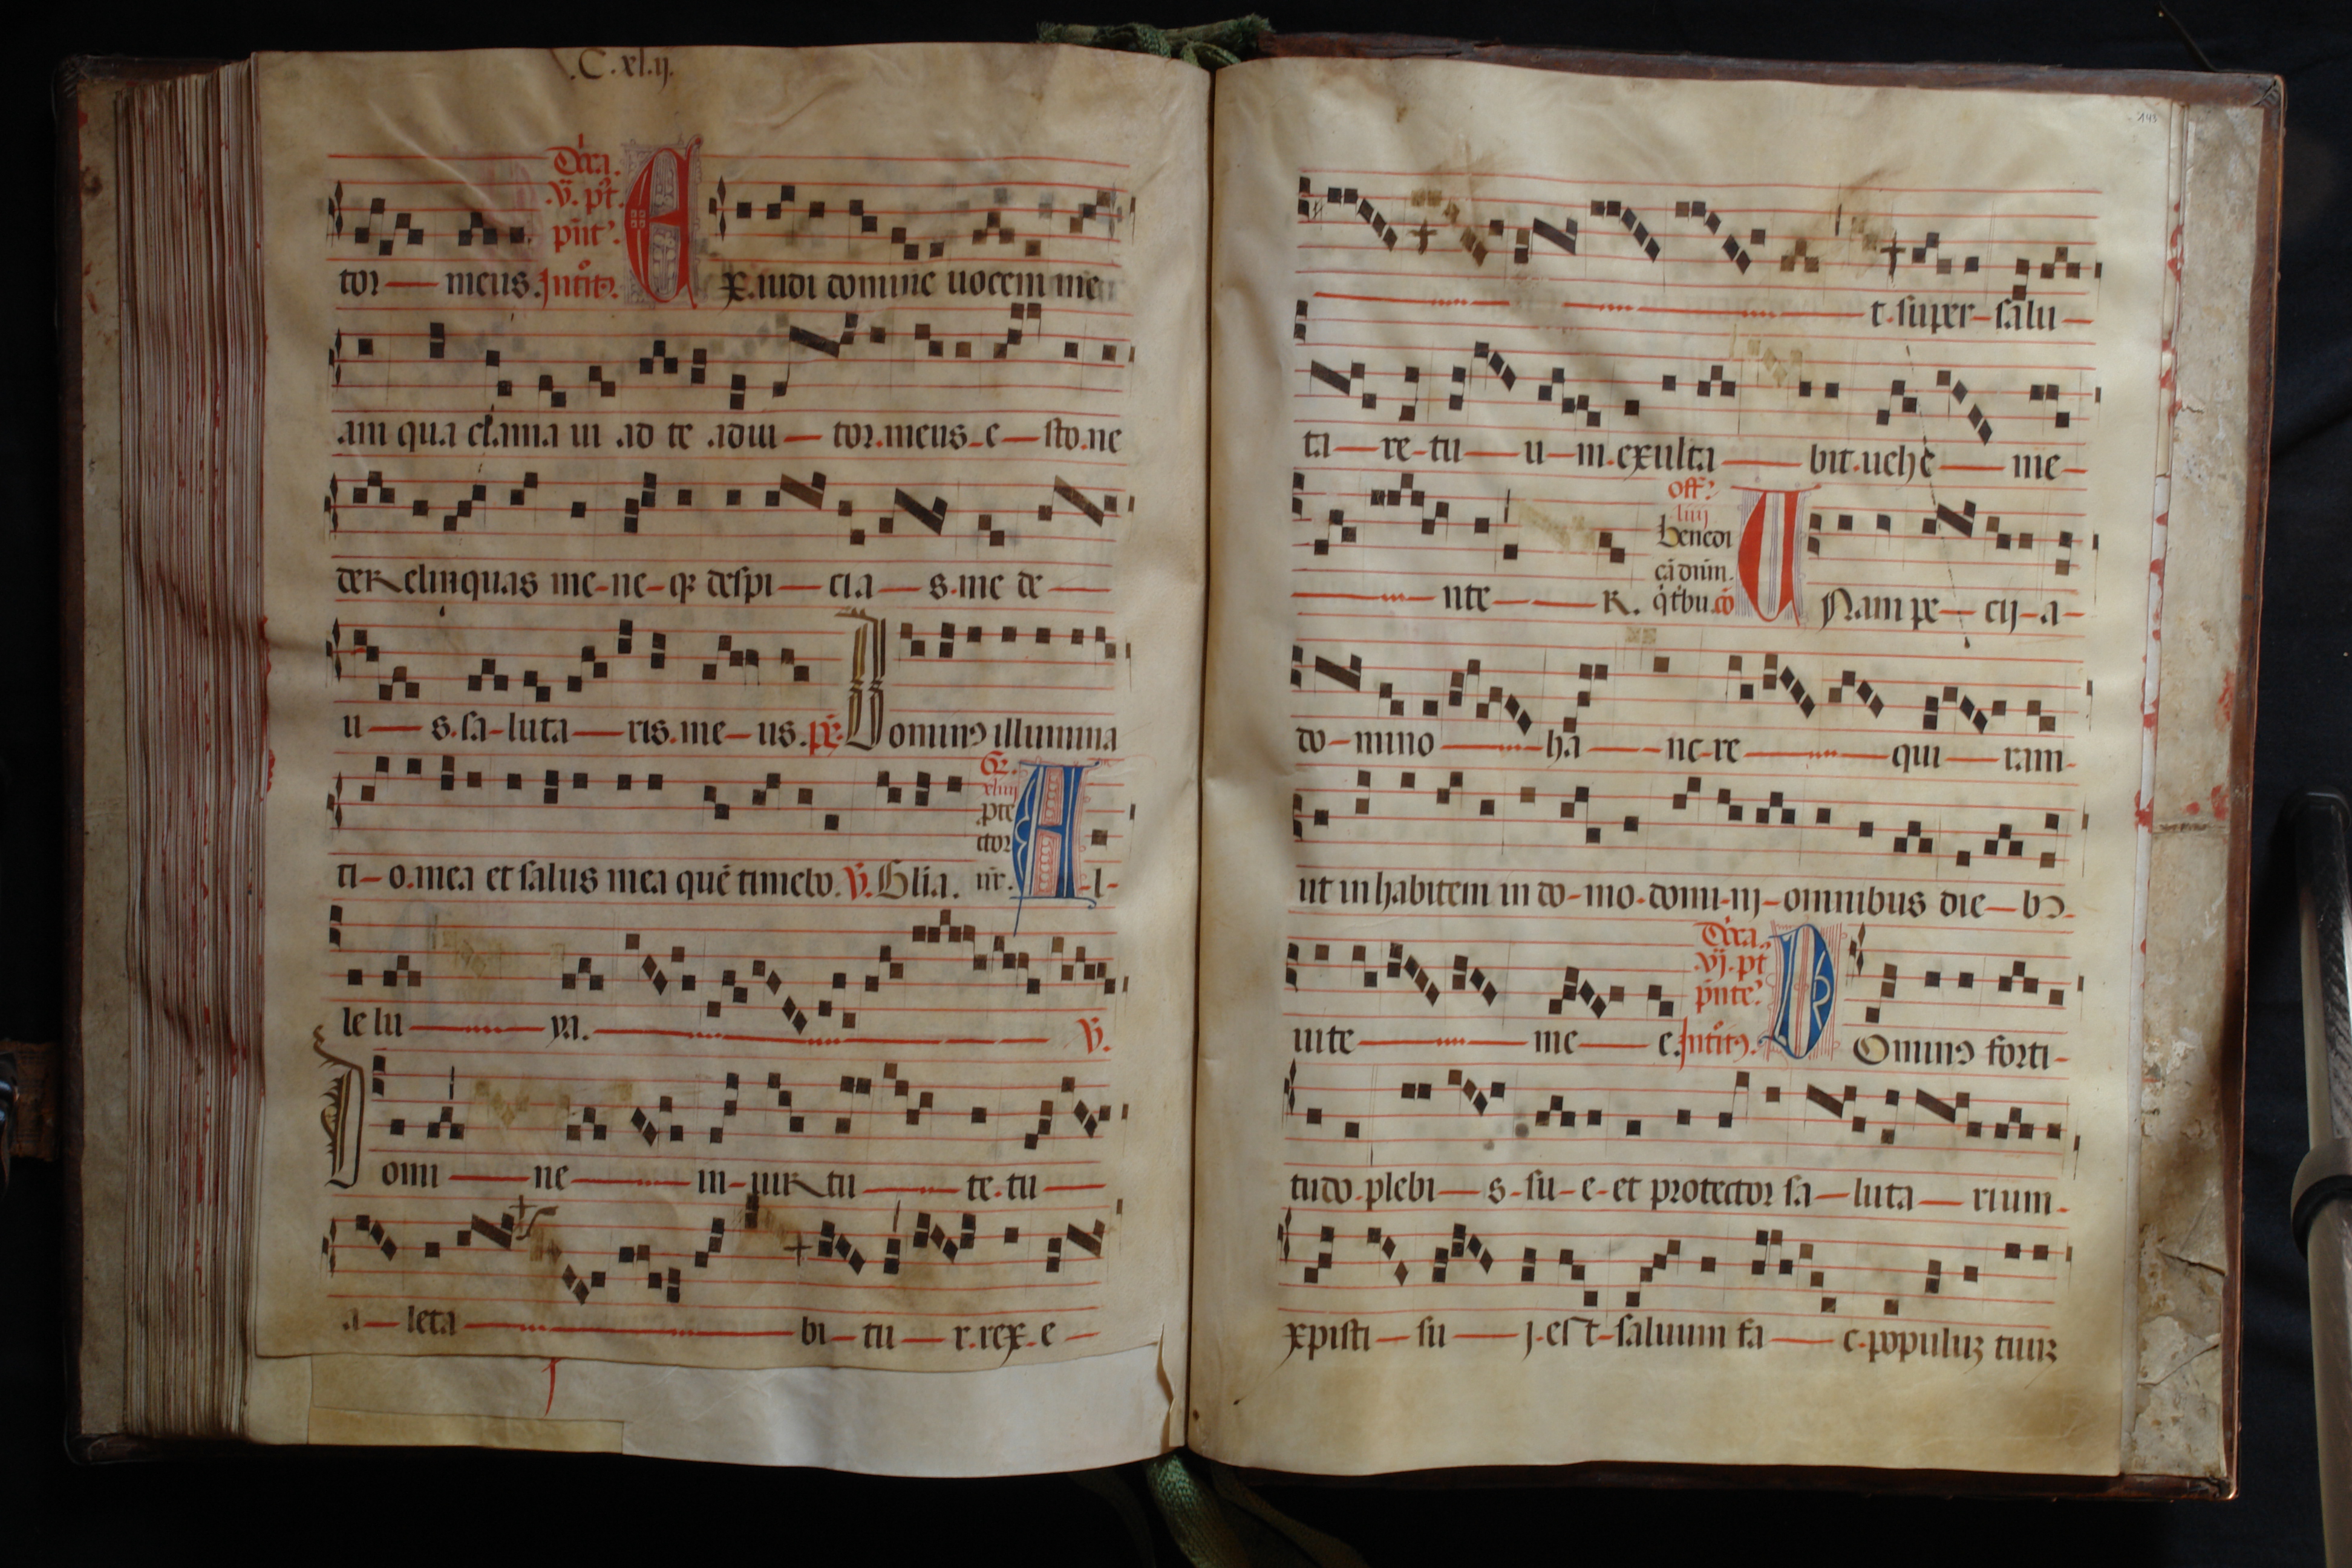 .C.xl.ij.
Dn̄ica.
.v̄. pt̄.
pn̄t'.
tor — meus. Intͦit9. Ex.audi domine uocem me
am qua clama ui ad te adiu — tor.meus - e — sto.ne
derelinquas me - ne - qȝ despi — cia — s.me de —
u — s.sa - luta — ris.me — us. ps̄. Domin9 illumina
Gr.
xliiij
.pte
ctor
ti - o.mea et salus mea quē timebo. V̄. Glīa. nr̄. Al -
le lu — ya. — V̄.
Domi — ne — in - uirtu — te.tu —
a — leta — bi — tu — r.rex.e —
143
— t.super - salu —
ta — re - tu — u — m.exulta — bit.uehe — me -
off.
liiij
benedi
cā dūm.
— nte — r. q̇tbu.cō UNam pe — cij - a -
do - mino — ha — nc - re — qui — ram -
ut inhabitem in do - mo.domi - nj - omnibus die — b9 -
Dn̄ica
.vj. pt
pn̄te'
uite — me — e. Intͦit9. DOmin9 forti -
tudo.plebi — s - su - e - et protector sa — luta — rium.
xpisti — su — j - est - saluum fa — c.populuȝ tuuȝ